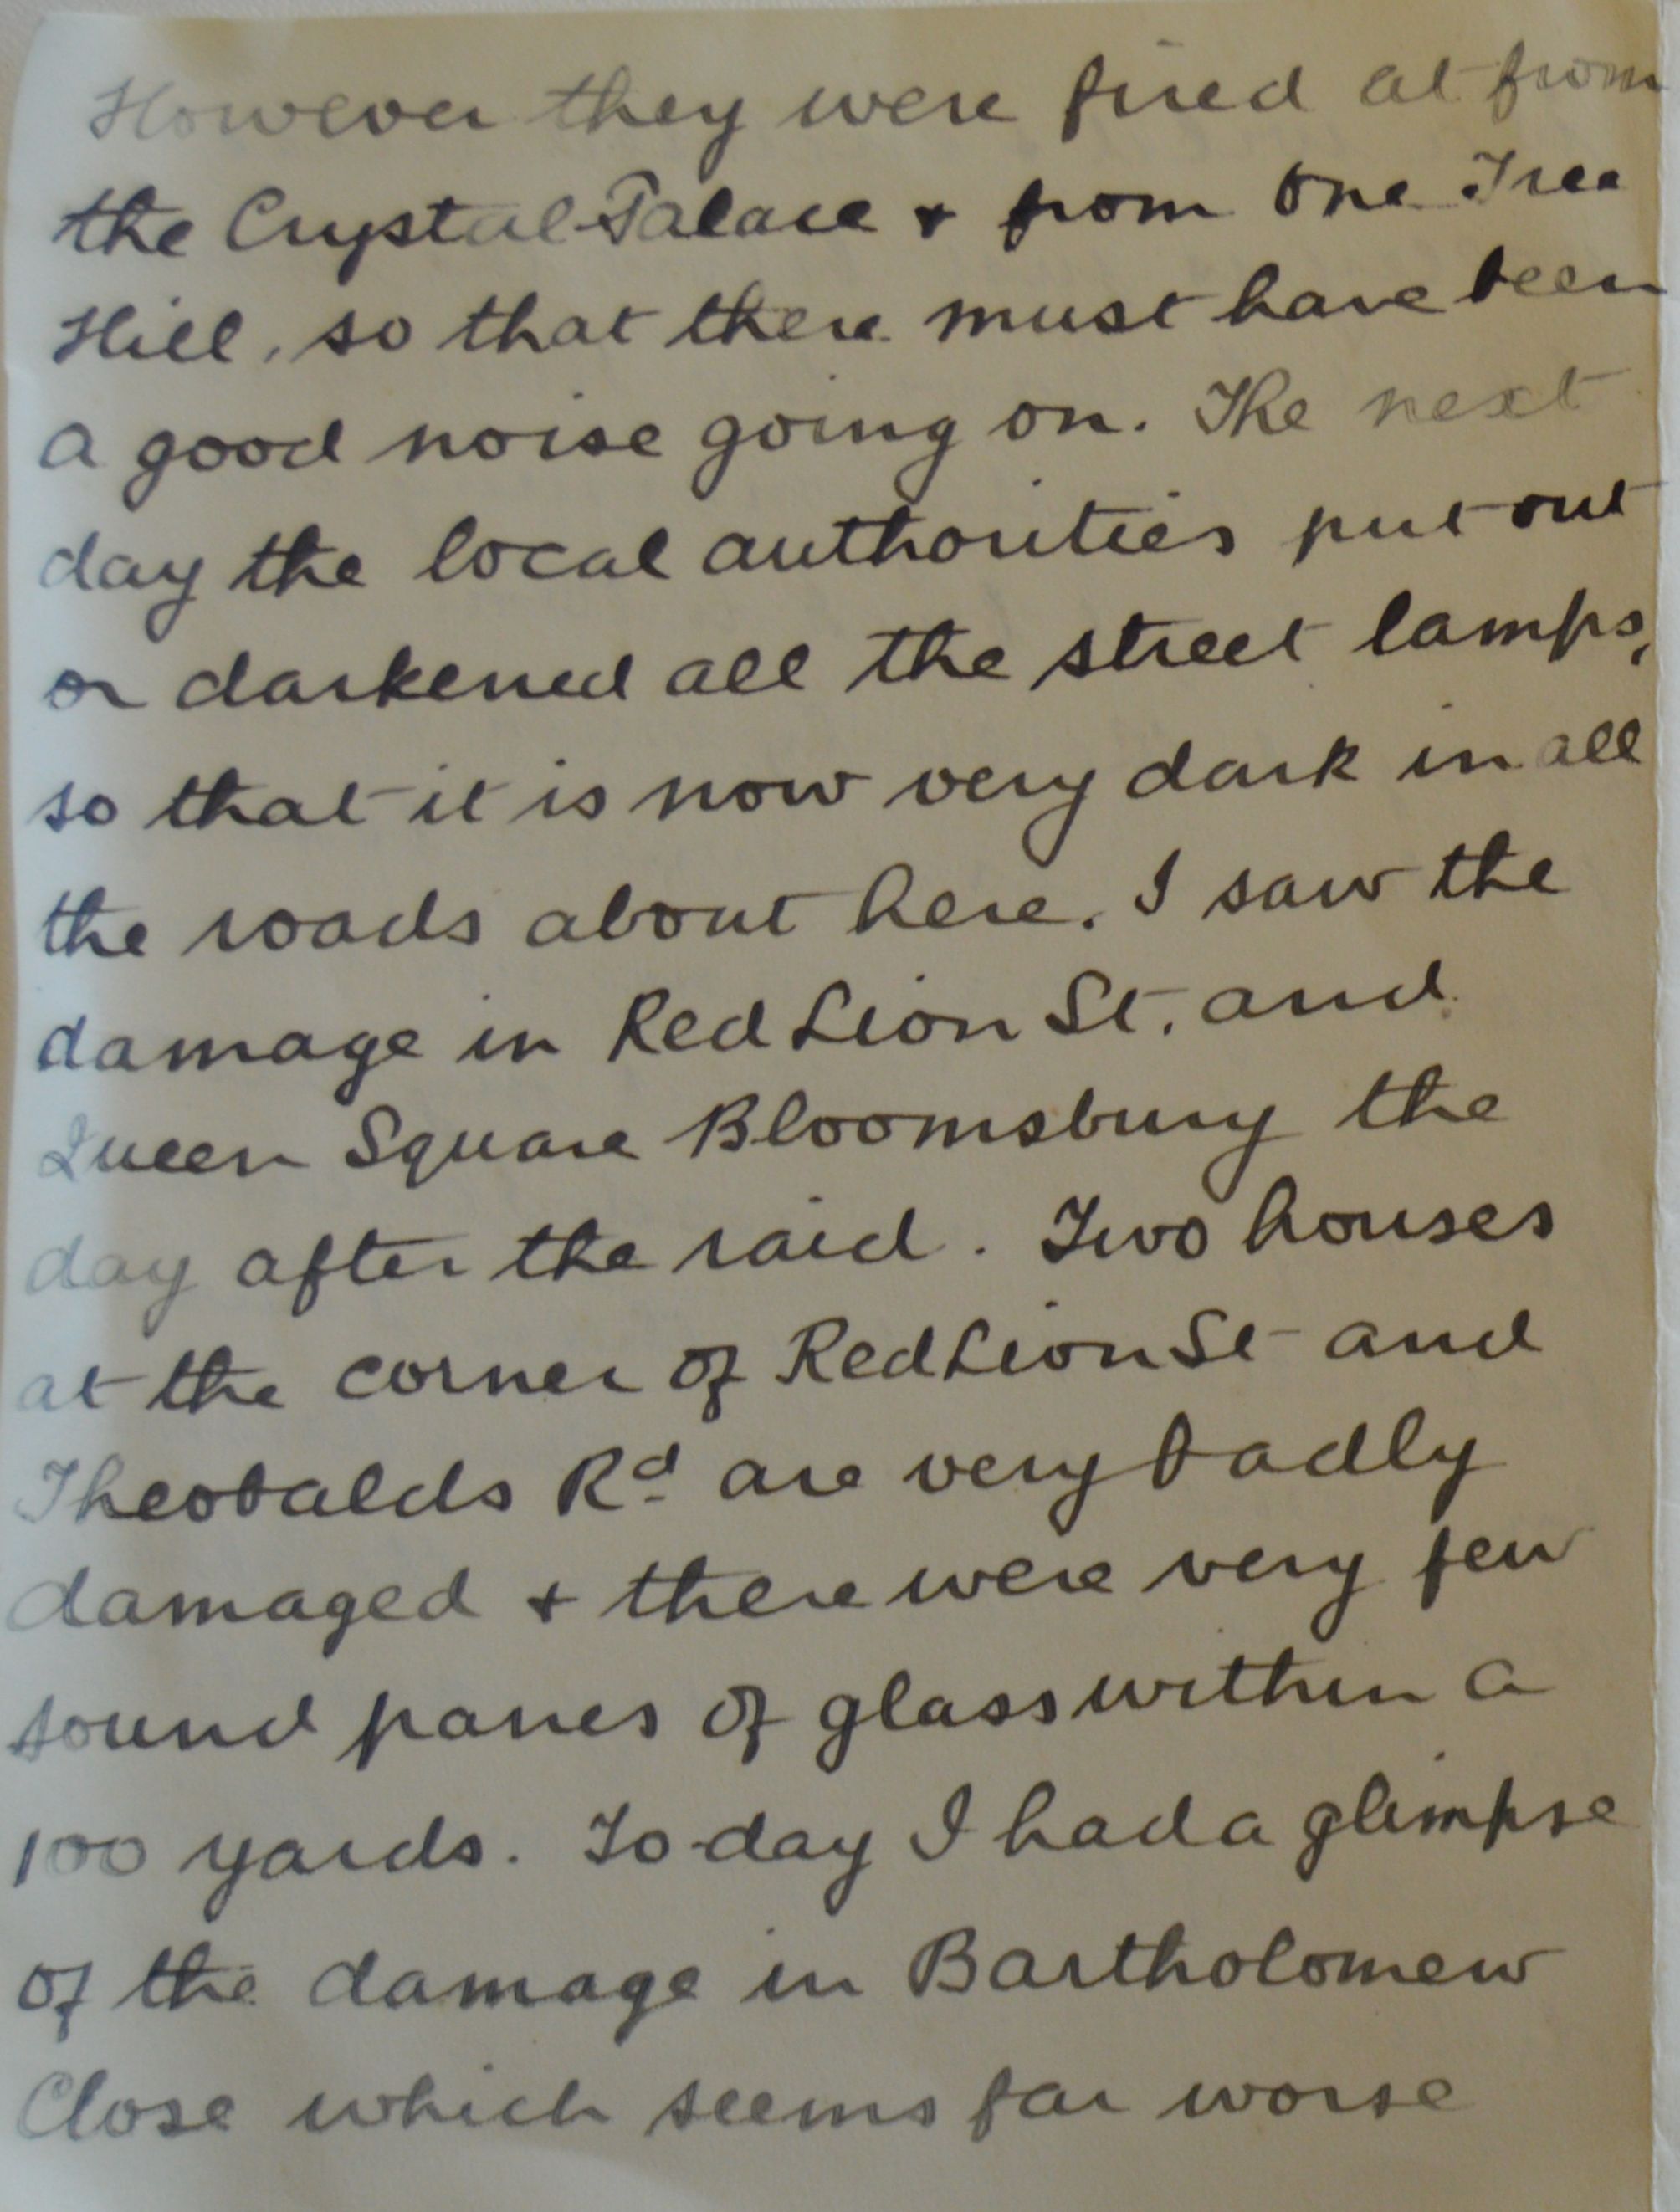 However they were fired at from
the Crystal Palace & from One Tree
Hill, so that there must have been
a good noise going on. The next
day the local authorities put out
or darkened all the street lamps,
so that it is now very dark in all
the roads about here. I saw the
damage in Red Lion St. and
Queen Square Bloomsbury the
day after the raid. Two houses
at the corner of Red Lion St and
Theobalds Rd are very badly
damaged & there were very few
sound panes of glass within a
100 yards. To-day I had a glimpse
of the damage in Bartholomew
Close which seems far worse